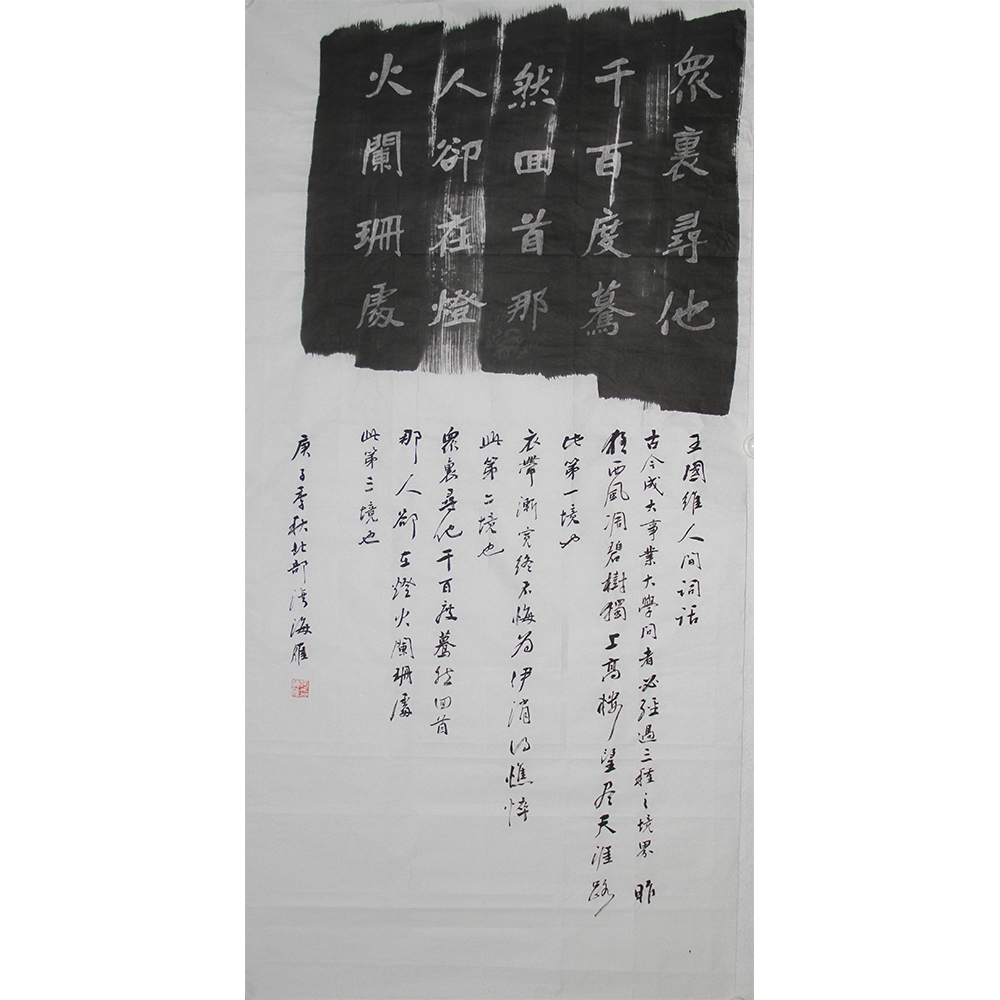 眾裏尋他
千百度驀
然回首那
人卻在燈
火闌珊處
王國維人间词话
古今成大事業大學问者必經過三種之境界 昨
夜西風凋碧樹獨上高樓望尽天涯路
此第一境也
衣帶漸寬終不悔为伊消得憔悴
此第二境也
眾裏尋他千百度驀然回首
那人卻在燈火闌珊處
此第三境也
庚子季秋北部湾海雁